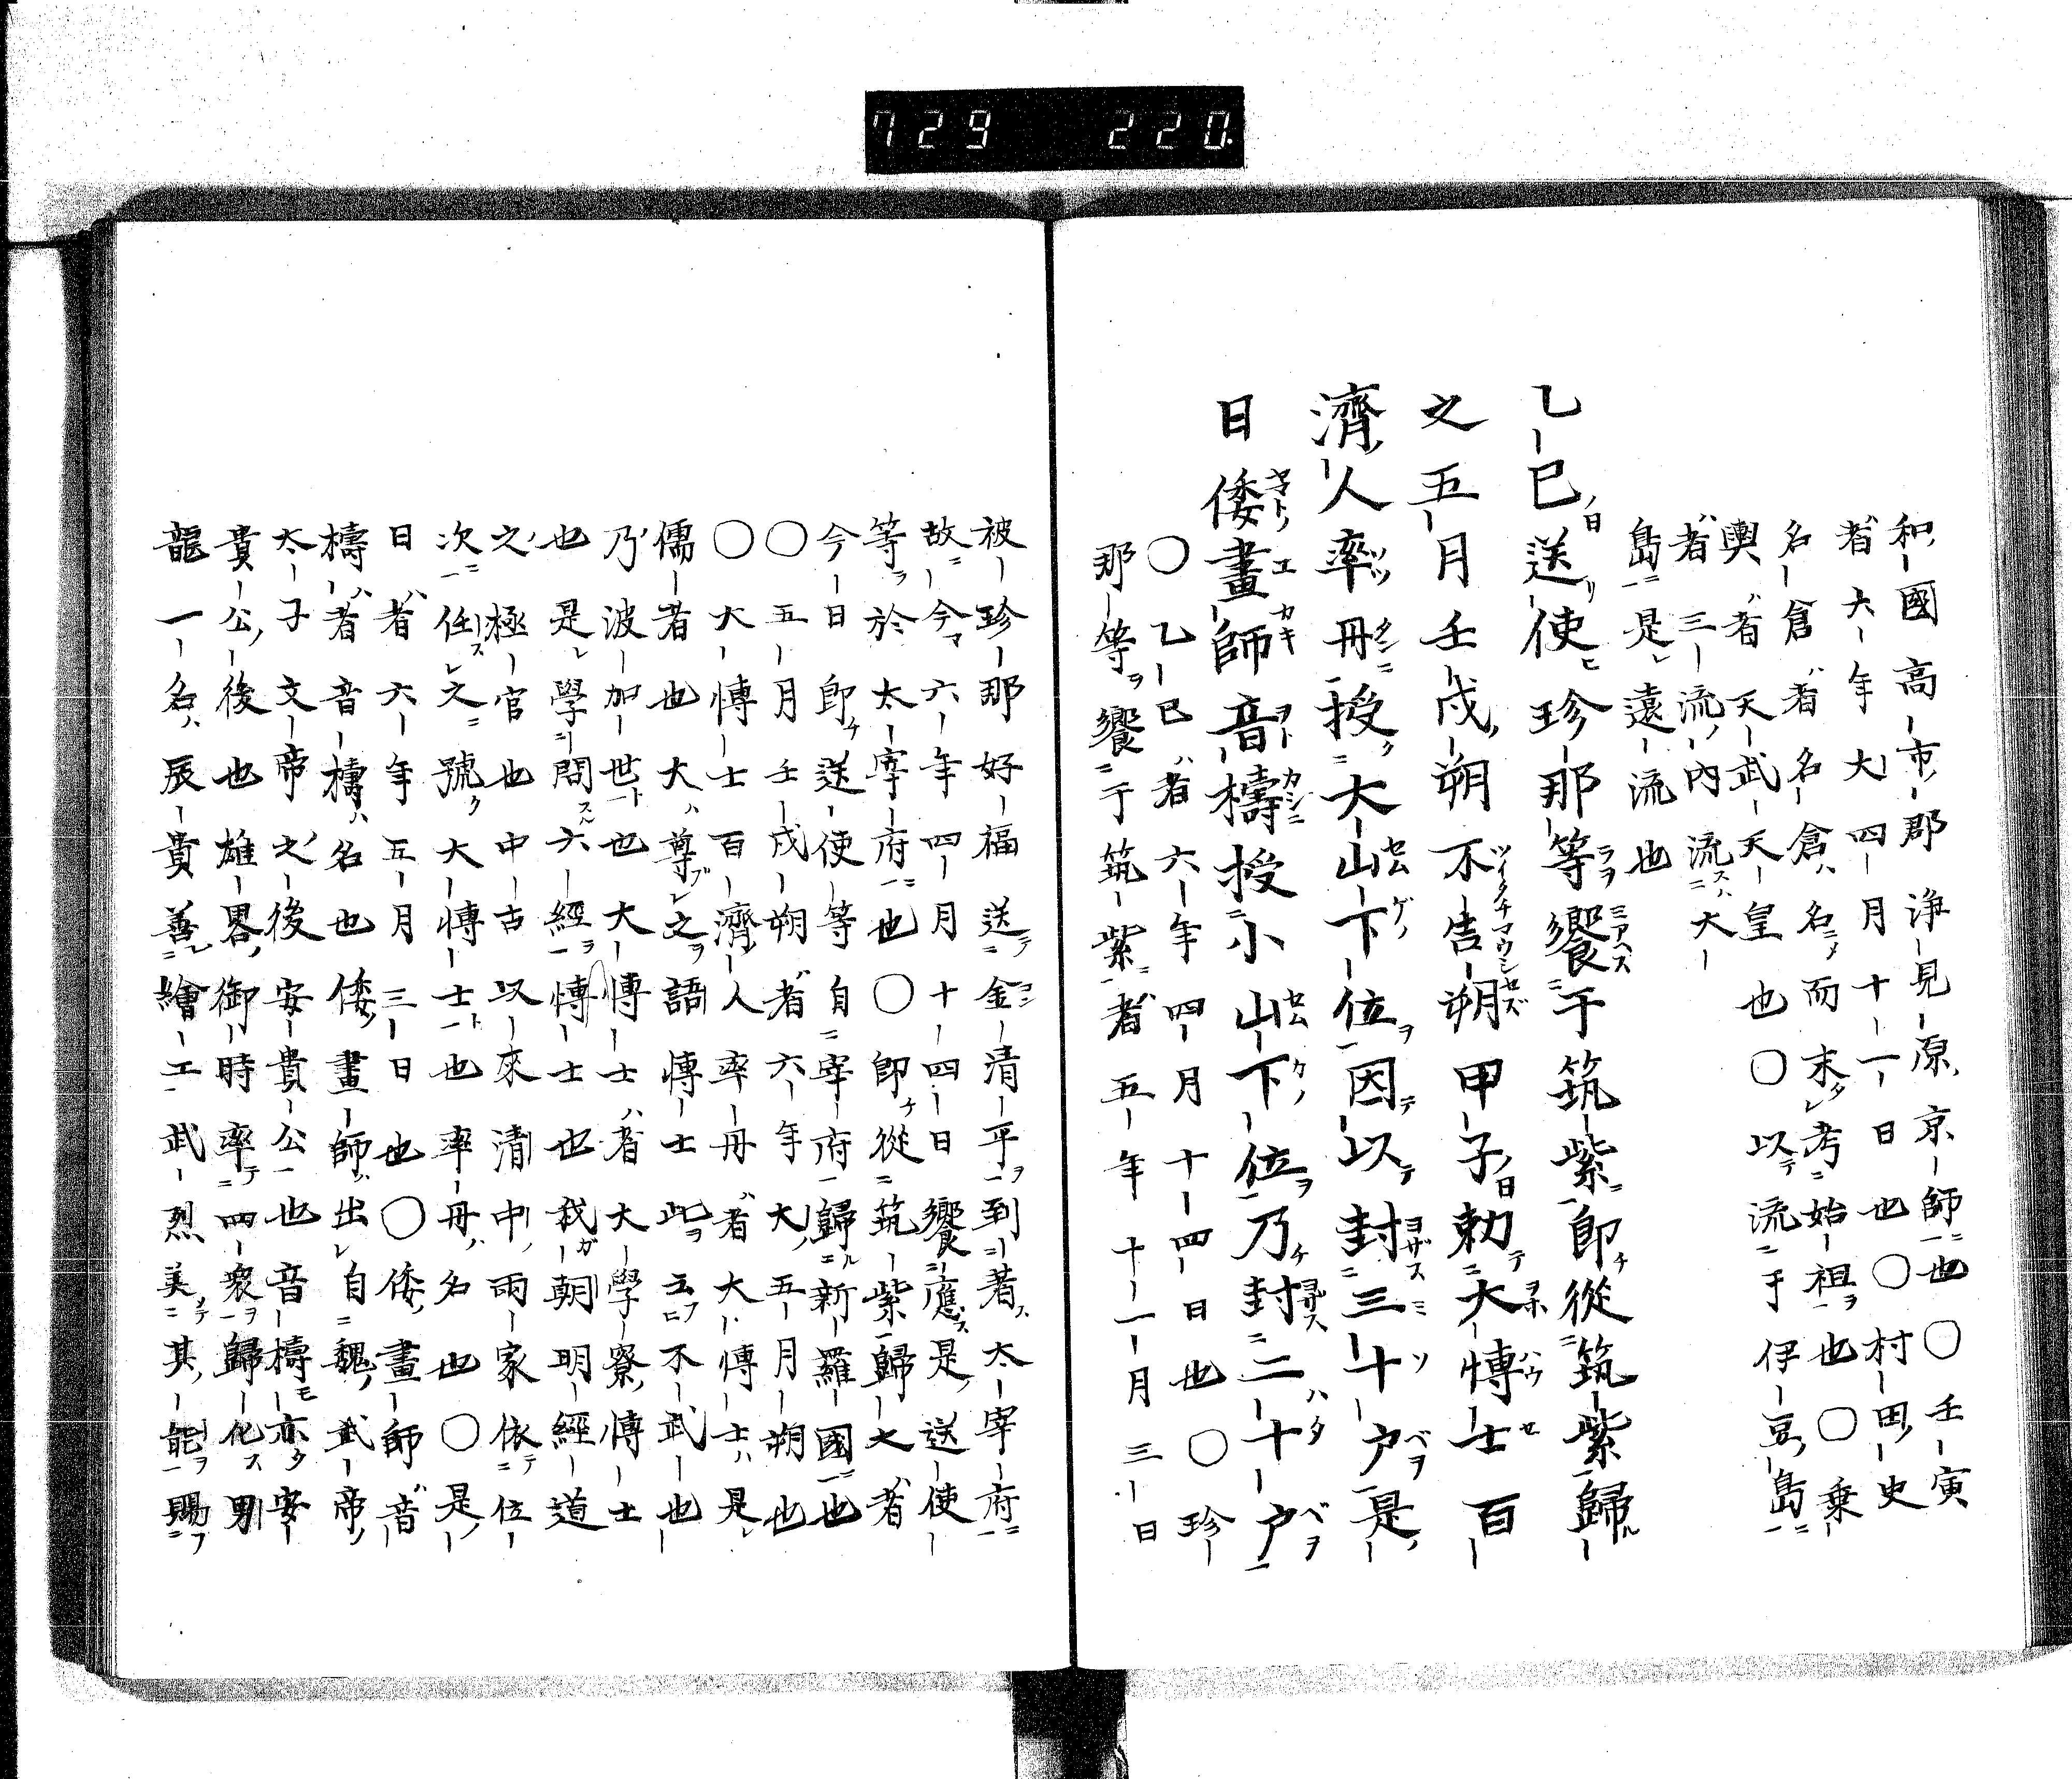 729 220.
和國高市郡浄見原京師也〇壬寅
者六年大四月十一日也〇村田史
名倉者名倉名而末考始祖也〇乗
輿者天武天皇也〇以流于伊豆島
者三流内流大
島是遠流也
乙巳送使珍那等饗于筑紫即從筑紫歸
之五月壬戌朔不告朔甲子勅大博士百
濟人率母授大山下位因以封三十戸是
日倭畫師音檮授小山下位乃封二十戸
〇乙巳者六年四月十四日也〇珍
那等饗于筑紫者五年十一月三日
被珍那好福送金清平到著太宰府
故今六年四月十四日饗應是送使
等於太宰府也〇即從筑紫歸之者
今日即送使等自宰府歸新羅國也
〇五月壬戌朔者六年大五月朔也
〇大博士百濟人率母者大博士是
儒者也大尊之語博士此云不武也
乃波加世也大博士者大學寮博士
也是學問六經博士也我朝明經道
之極官也中古以來清中兩家依位
次任之號大博士也率母名也〇是
日者六年五月三日也〇倭畫師音
檮者音檮名也倭畫師出自魏武帝
太子文帝之後安貴公也音檮亦安
貴公後也雄畧御時率四衆歸化男
龍一名辰貴善繪工武烈美其能賜